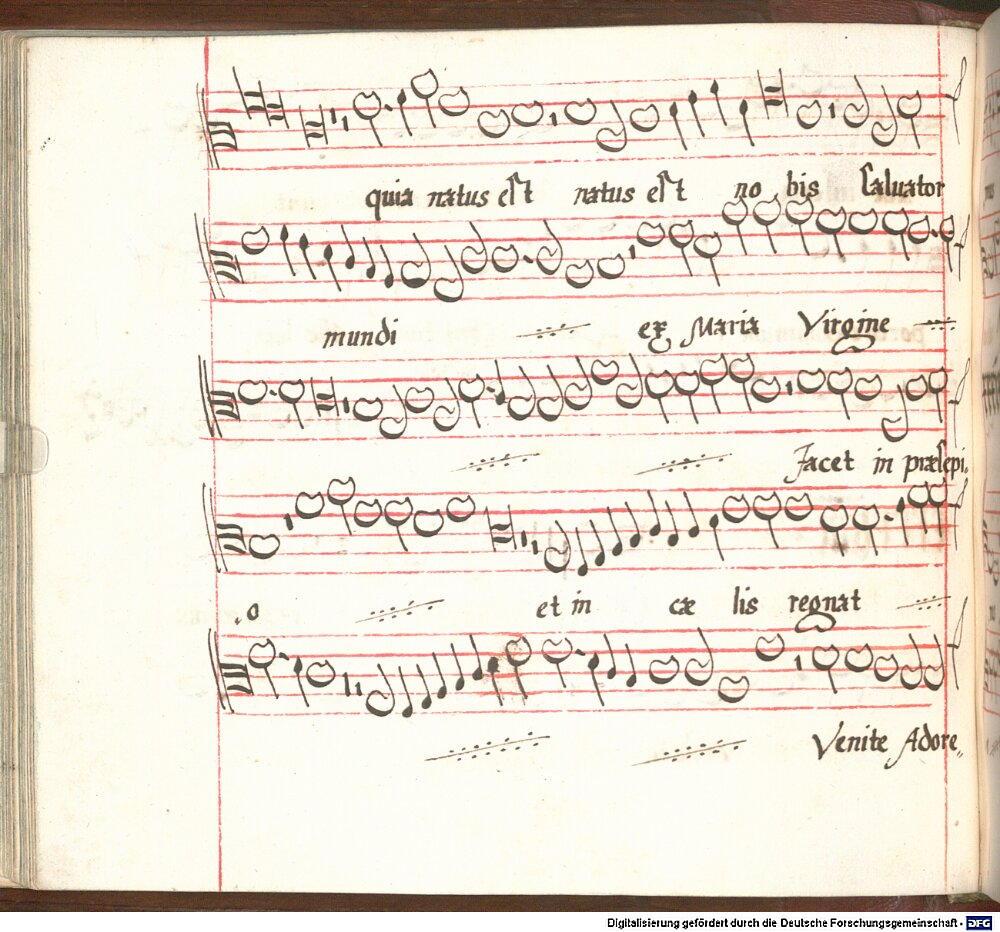 quia natus est natus est no bis Saluator
mundi ex Maria Virgine
Jacet in præsepi
o et in cæ lis regnat
Venite Adore
Digitalisierung gefördert durch die Deutsche Forschungsgemeinschaft - DFG